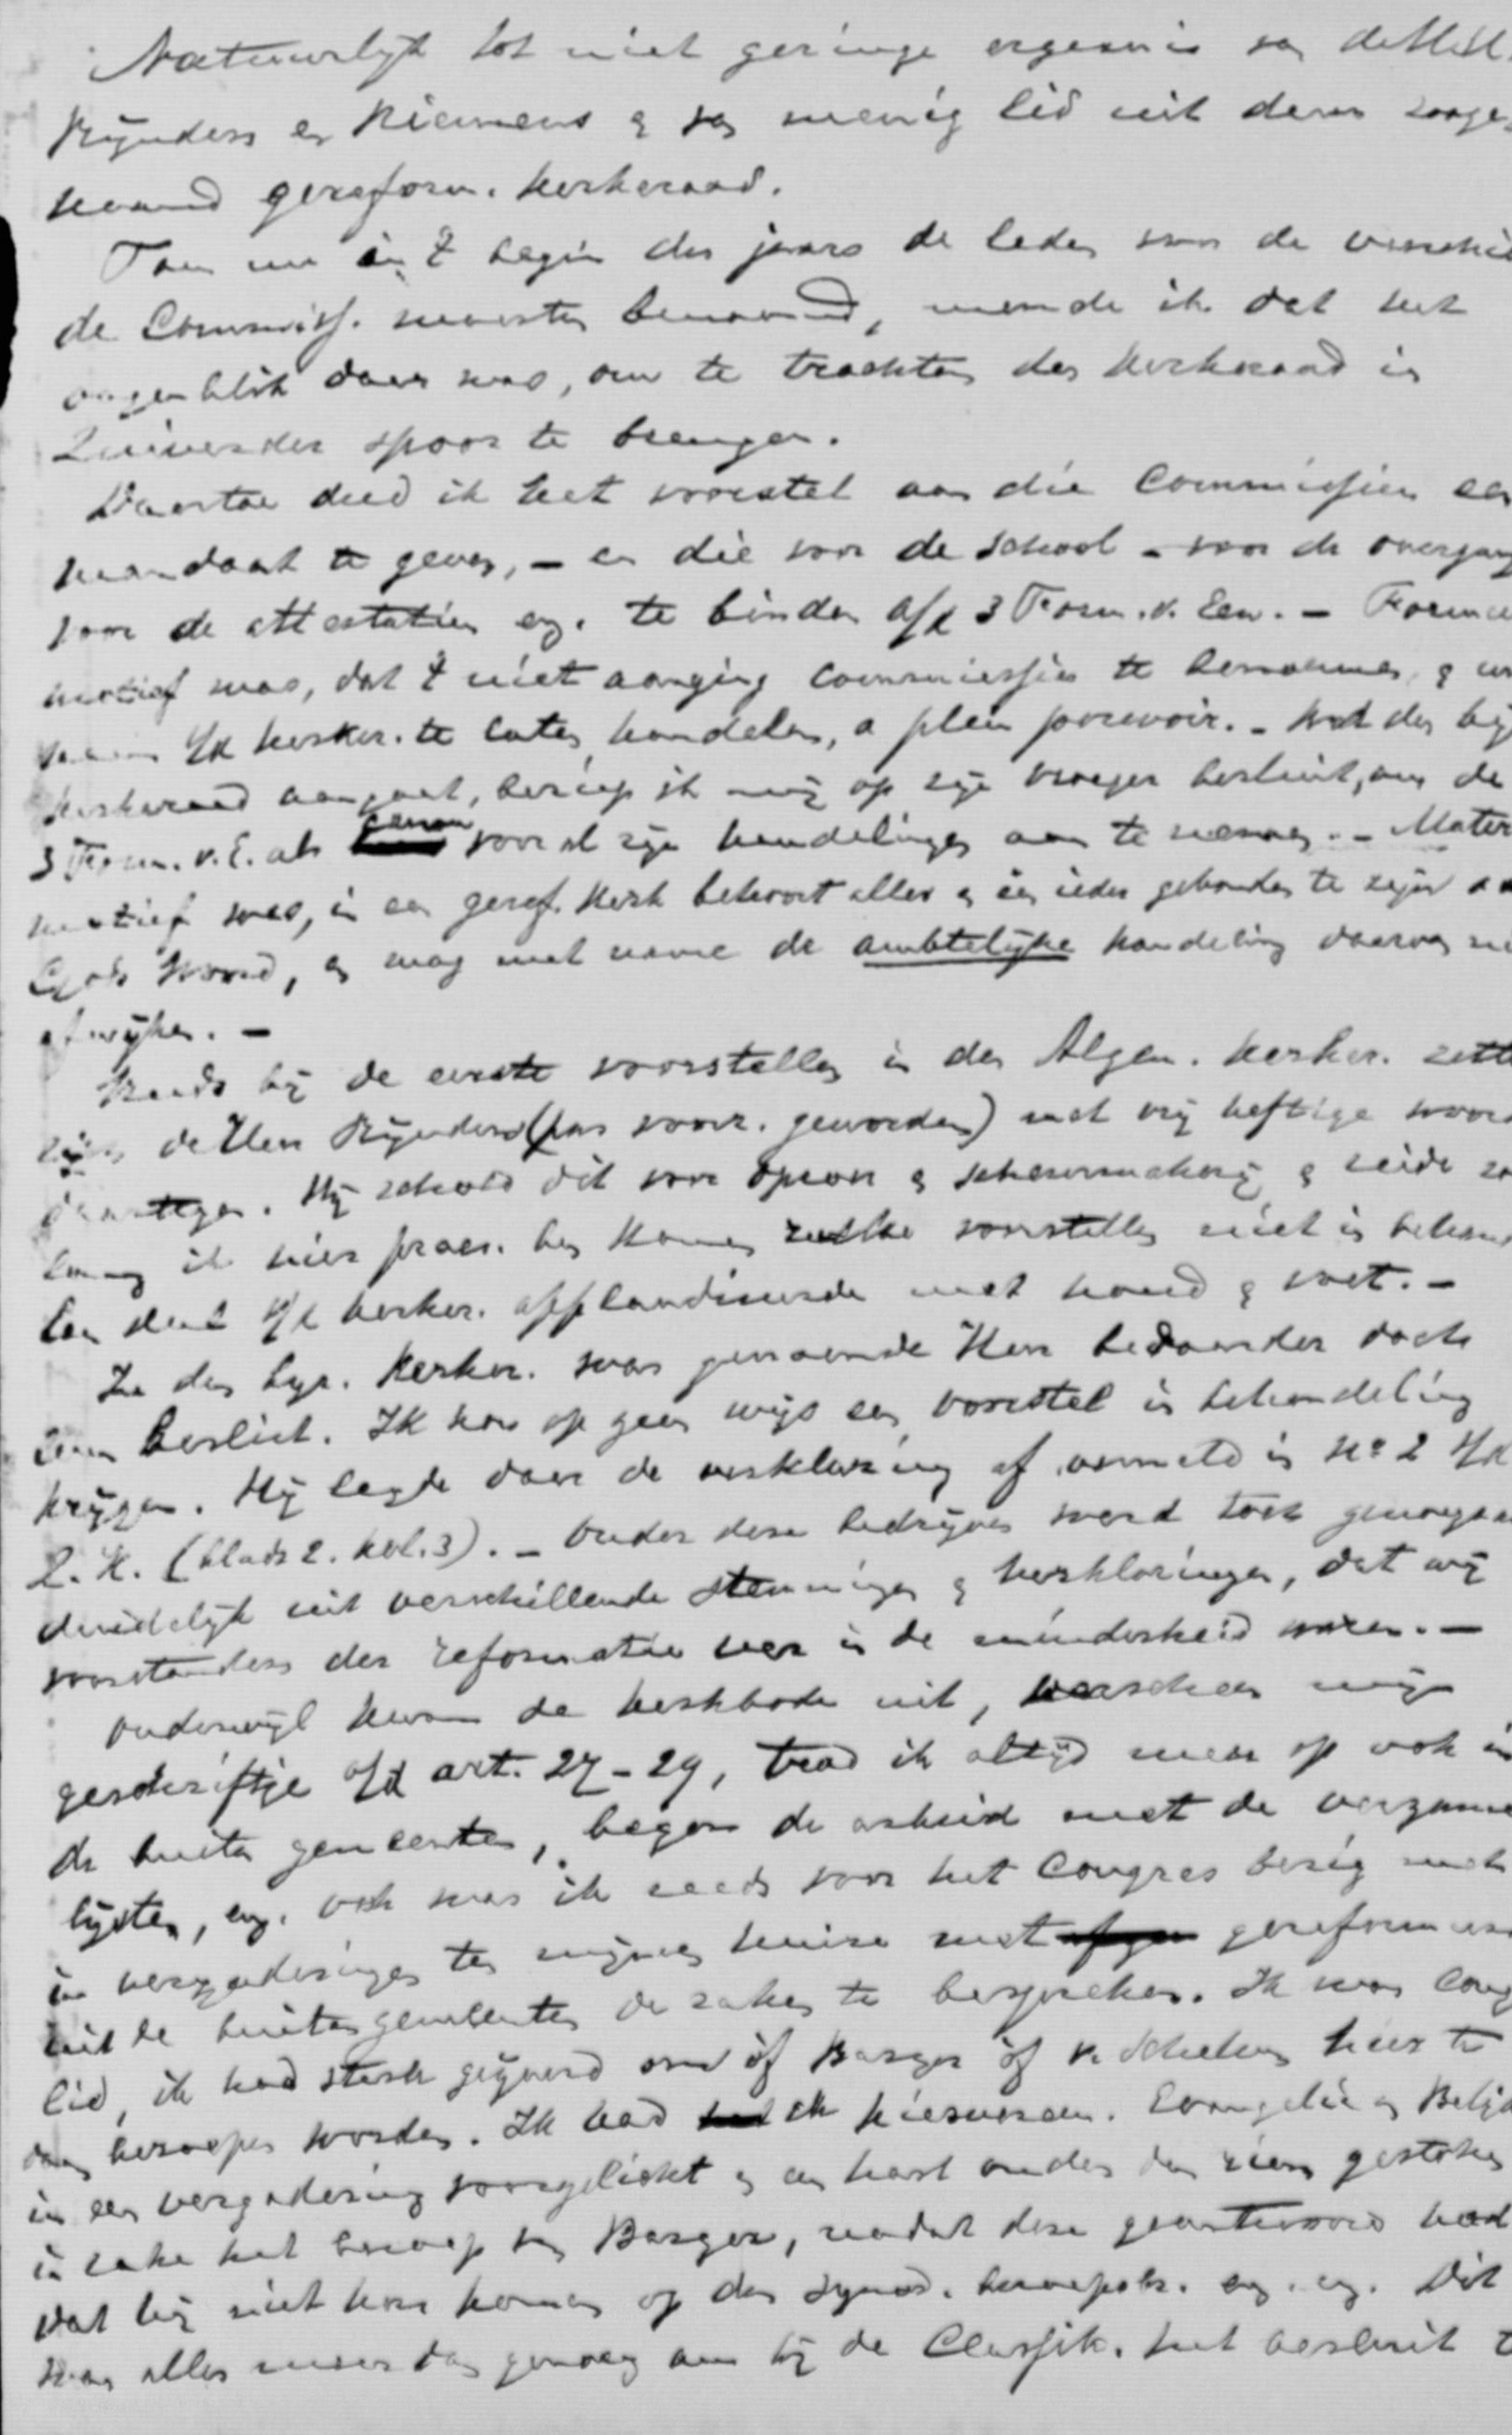 Natuurlijk tot niet geringe ergernis van de HH.
Rijnders en Riemens & van menig lid uit den zooge-
naamd gereform. kerkeraad.
Toen nu in 't begin des jaars de leden van de verschil
de Commiss. moesten benoemd, meende ik dat het
oogenblik daar was, om te trachten den kerkeraad in
Zuiverder spoor te brengen.
Daartoe deed ik het voorstel aan die Commissien een
mandaat te geven, – en die voor de school – voor de overgang
voor de attestatien enz. te binden a/d 3 Form. v. Een. –
motief was, dat 't niet aanging commissies te benoemen, &
v/d kerker. te laten handelen, a plein pouvoir. – Wat den bijz
kerkeraad aangaat, beriep ik mij op zijn vroeger besluit, om de
3 Form. v. E. als canon voor al zijn handelingen aan te nemen. – Mater
motief was, in een geref. Kerk behoort alles en een ieder gebonden te zijn aan
Gods Woord, en mag met name de ambtelijke handeling daarvan
afwijken. –
Reeds bij de eerste voorstellen in den Algem. kerker. zette
de Heer Rijnders (pas voorz. geworden) met vrij heftige woor
Hij schold dit voor & scheurmakerij & zeide zoo
lang ik hier praes. ben komen zulke voorstellen niet in behan
Een deel v/d kerker. applaudiseerde met hand & voet. –
In den byz. Kerker. was genoemde Heer bedaarder doch
beslist. Ik kon op geen wijs een voorstel in behandeling
krijgen. Hij legde daar de verklaring af vermeld in No 2 v/d
Z. K. (bladz 2. kol. 3). – Onder deze bedrijven werd toch genoegzaam
duidelijk uit verschillende stemmingen & verklaringen, dat wij
voorstanders der reformatie ver in de minderheid waren. –
Onderwijl kwam de kerkbode uit, verscheen mijn
geschriftje o/d art. 27–29, trad ik altijd meer op ook in
de buiten gemeenten, begon de arbeid met de verzame
lijsten, enz. Ook was ik reeds voor het Congres bezig met
in vergaderingen ten mijnen huize met gereformeer
uit de buitengemeenten de zaken te bespreken. Ik was Cong
lid, ik had sterk geijverd om òf Barger òf v. Schelven hier te
doen beroepen worden. Ik had de kiesvereen. Evangelie en Belijd
in een vergadering voorgelicht en een hart onder den riem gestoken
in zake het beroep van Barger, nadat deze geantwoord had
dat hij niet kon komen op den synod. beroepsbr. enz. enz. Dit
was alles meer dan genoeg om bij de Classik. het besluit t